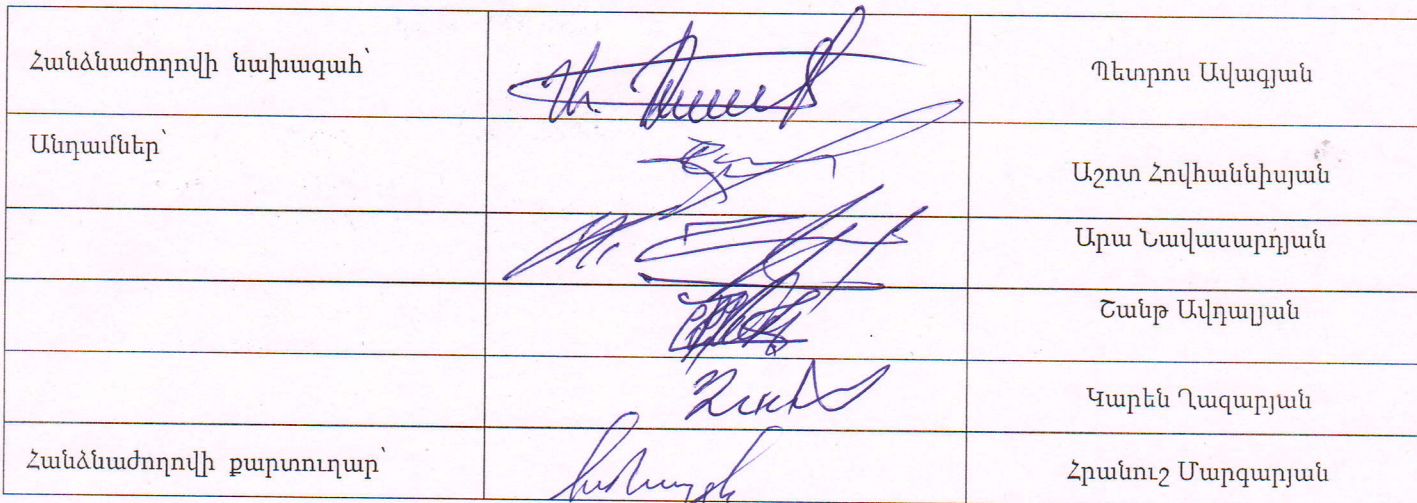 Հանձնաժողովի նախագահ՝ Պետրոս Ավագյան
Անդամներ՝ Աշոտ Հովհաննիսյան
Արա Նավասարդյան
Շանթ Ավդալյան
Կարեն Ղազարյան
Հանձնաժողովի քարտուղար՝ Հրանուշ Մարգարյան